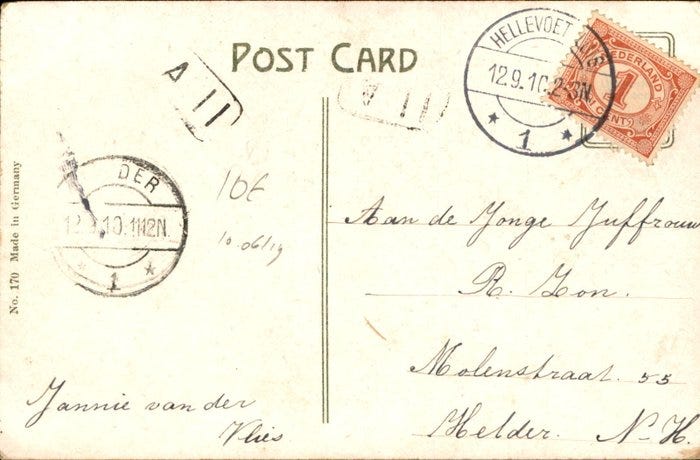 POST CARD
A II
A II
HELLEVOET
12.9.10.2-3N
1
NEDERLAND
1
CENT
DER
12. .10.11-12N.
1
No. 170 Made in Germany
10E
10.06/19
Aan de Jonge Juffrouw
R. Zon.
Molenstraat. 55
Helder. N-H.
Jannie van der
Vlies